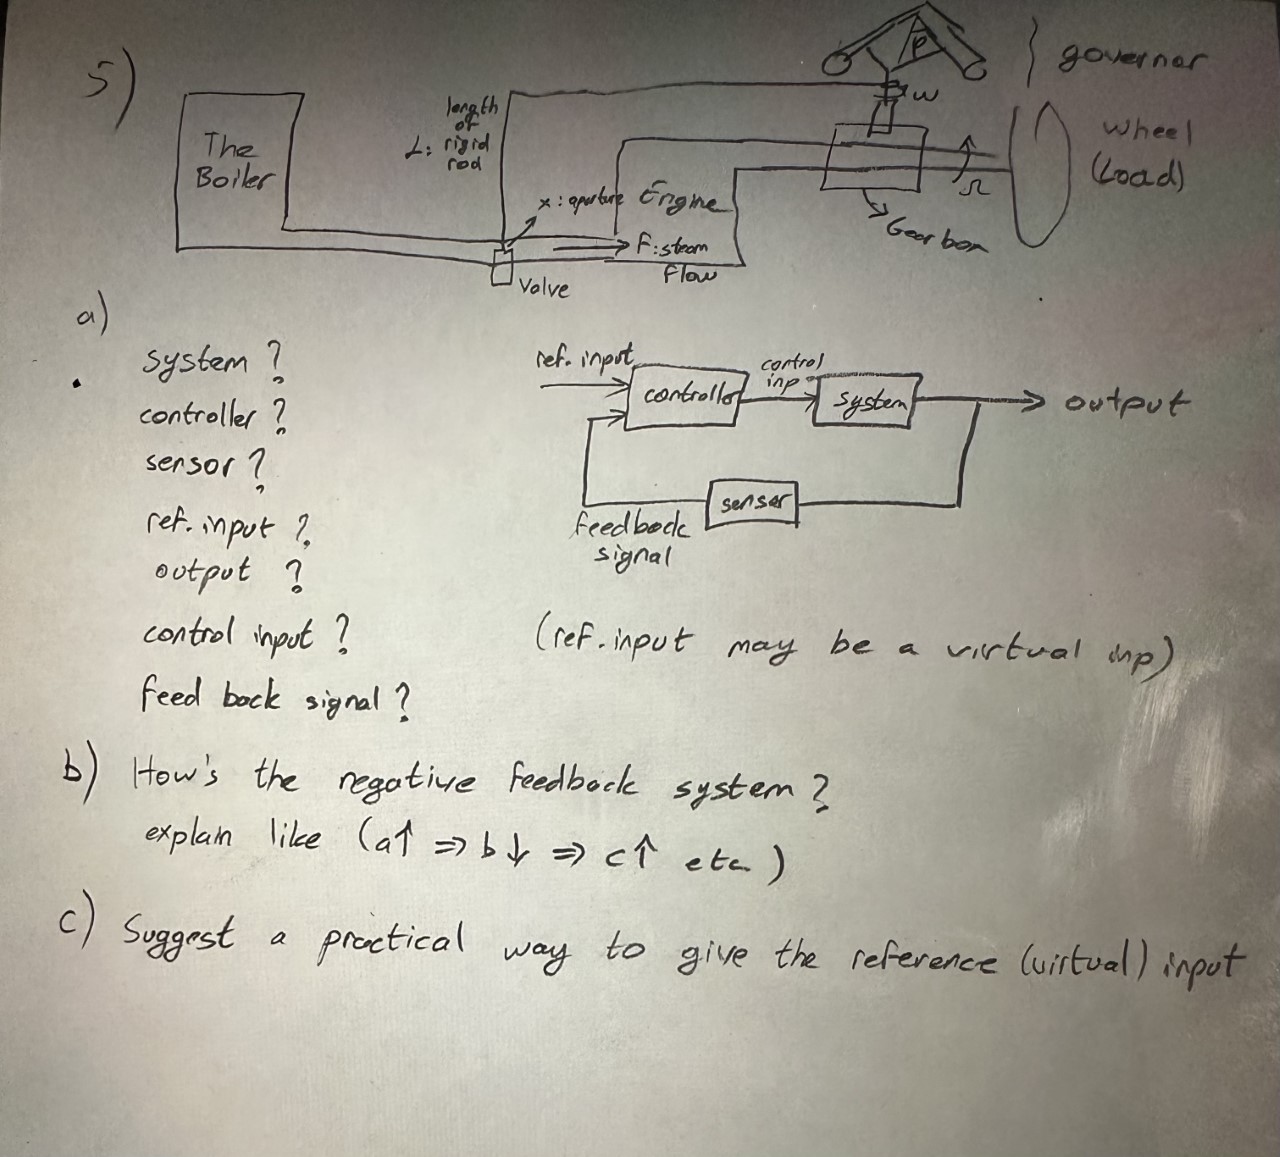 5)
governor
φ
w
The
Boiler
length
of
L: rigid
rod
wheel
(Load)
x: aperture
Engine
Ω
Gearbox
F: steam
flow
Valve
a)
system ?
controller ?
sensor ?
ref. input ?
output ?
control input ?
feed back signal ?
ref. input
controller
control
inp
system
output
sensor
feedback
signal
(ref. input may be a virtual inp)
b) How's the negative feedback system ?
explain like (a↑ ⇒ b↓ ⇒ c↑ etc.)
c) Suggest a practical way to give the reference (virtual) input